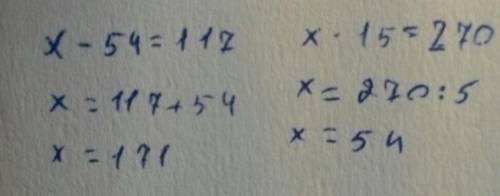 x - 54 = 117
x = 117 + 54
x = 171
x · 15 = 270
x = 270 : 5
x = 54